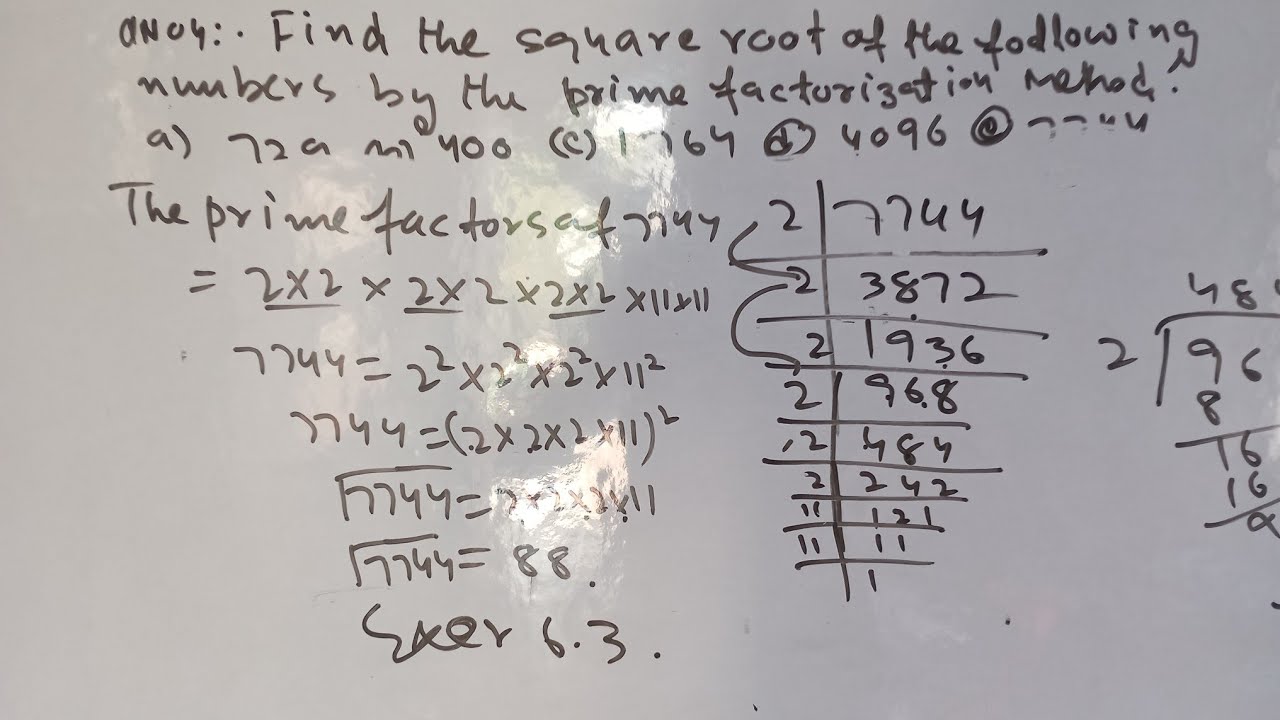 QNO4:. Find the square root of the fodlowing
numbers by the prime factorization Method?
a) 729 400 (c) 1764 (d) 4096 (e) 7744
The prime factors of 7744
= 2×2 × 2×2 × 2×2 ×11×11
7744 = 2²×2²×2²×11²
7744 = (2×2×2×11)²
√7744 = 2×2×2×11
√7744 = 88.
Exer 6.3.
2 | 7744
2 | 3872
2 | 1936
2 | 968
2 | 484
2 | 242
11 | 121
11 | 11
1
48
2 | 96
8
16
16